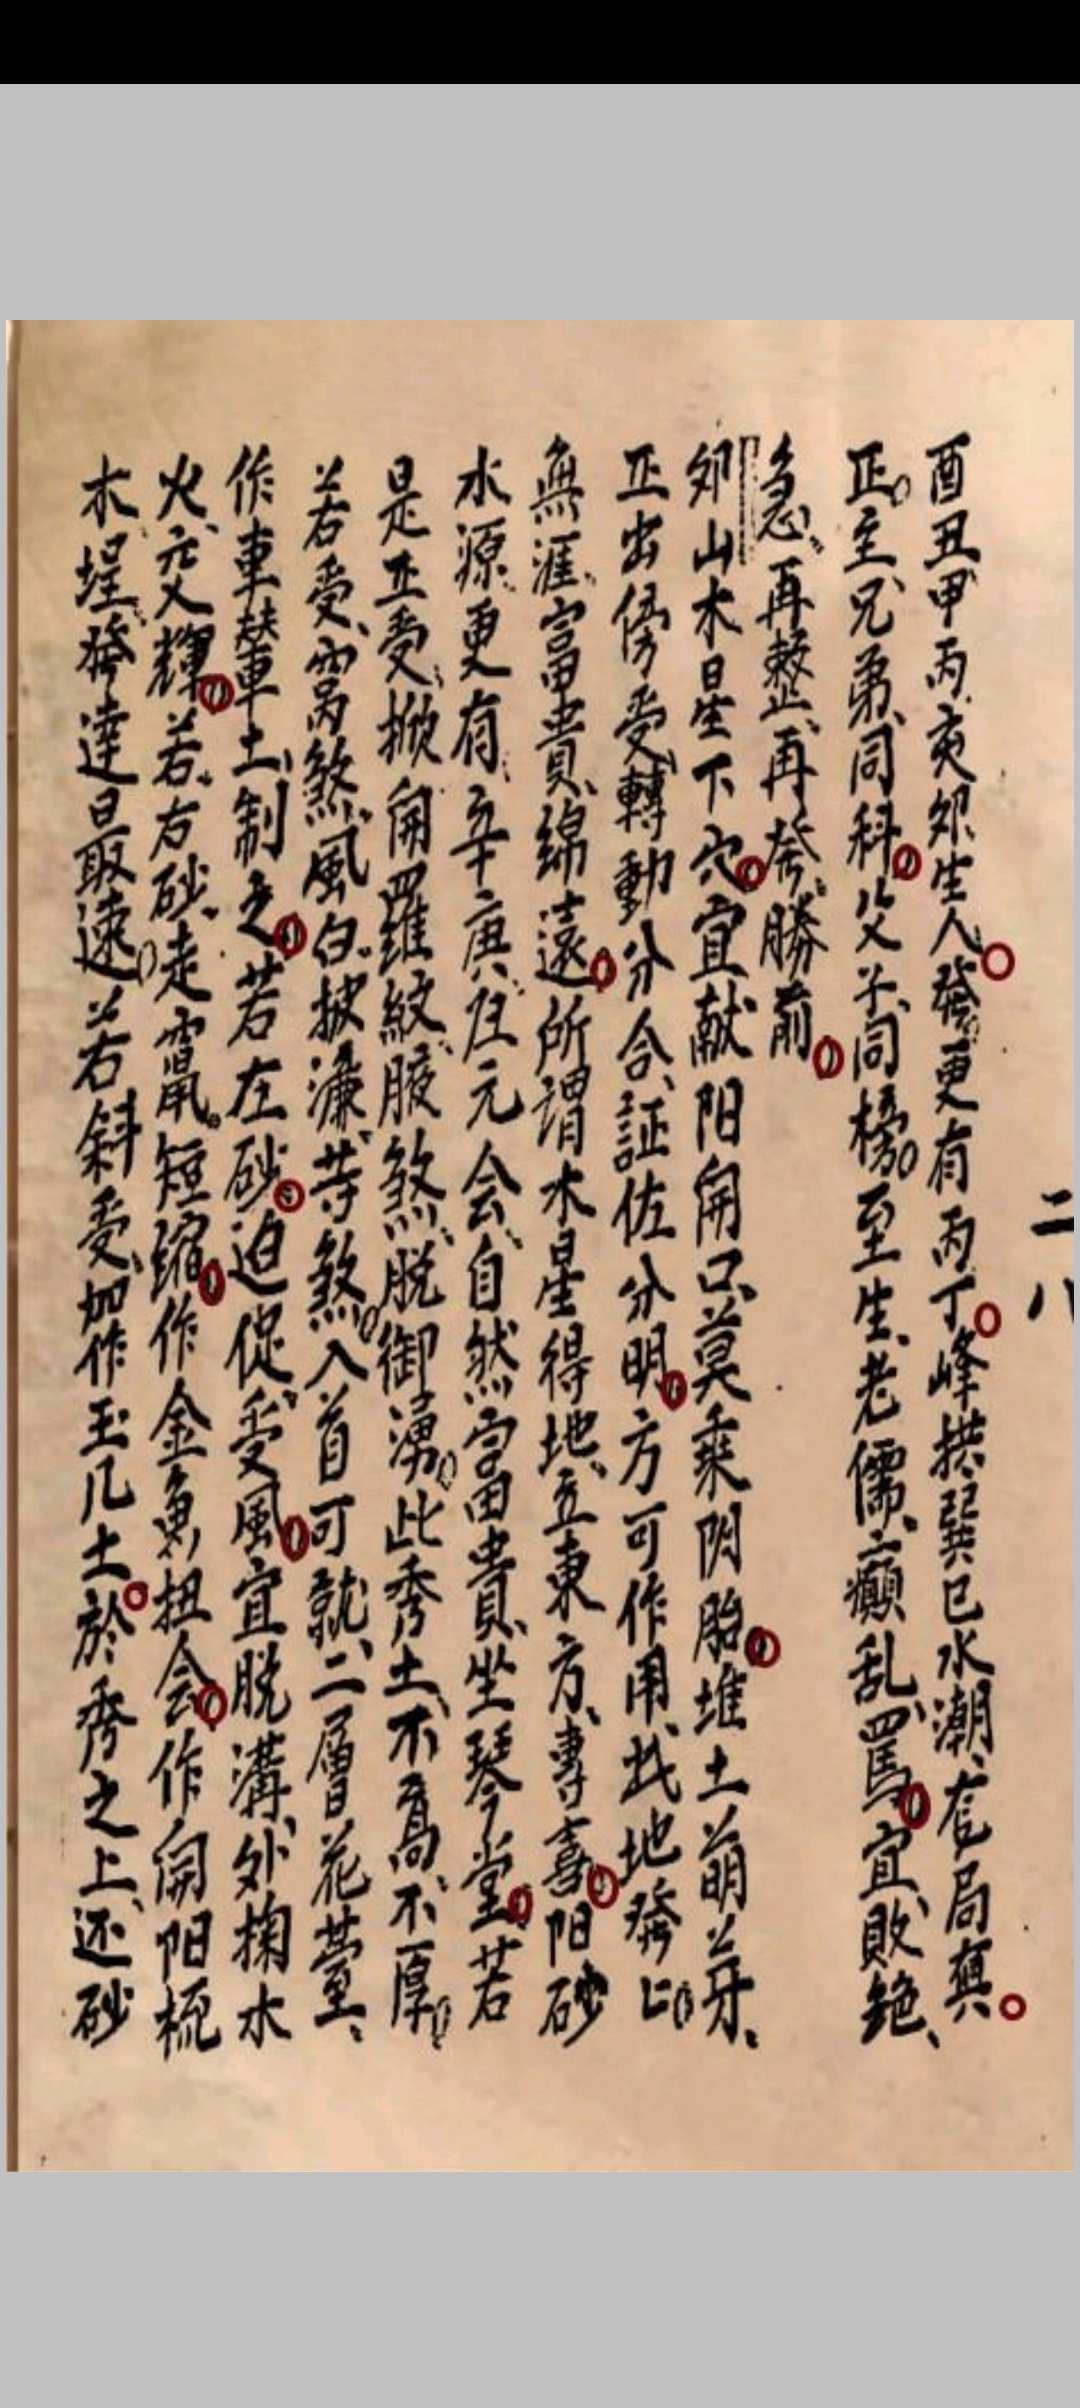 二八
酉丑甲丙亥卯生人發更有丙丁峰拱巽巳水潮局
正主兄弟同科父子同榜至生老儒癲乱罵宜敗絶
急再整再發勝前
卯山木星下穴宜献阳開口莫乘阴胎堆土萌芽
正出傍受轉動分合証佐分明方可作用此地發
無涯富貴綿遠所謂木星得地立東方專喜阳砂
水源更有辛庚元会自然富貴坐琴堂若
是正受掀開羅紋脫御此秀土不高不厚
若受窩煞風白披濂等煞入首可就二層花臺
作車輦土制之若左砂迫促受風宜脱溝外掬水
火交輝若右砂走竄短縮作金魚扭会作開阳梳
木埕發達最速若斜受加作玉几土於秀之上还砂